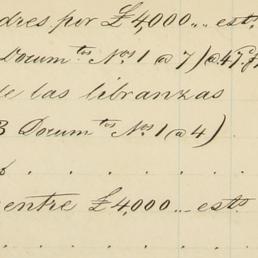 dres por £4,000... ests.
Docum.tos Nos. 1 a 7) a 47 p.
de las libranzas
B Docum.tos Nos. 1 a 4)
. . . . . . .
entre £4,000... ests.
. . . . . . .